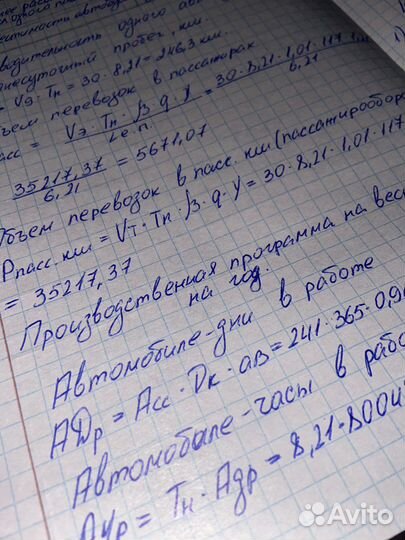 одного
одного
= Vэ · Тн = 30 · 8,21 = 246,3 км.
объем перевозок в пассажирах
= Vэ · Тн · β · q · γ / lе.п. = 30 · 8,21 · 1,01 · 117 / 6,21
35217,37 / 6,21 = 5671,07
Объем перевозок в пасс. км (пассажирооборо
Рпасс. км = Vт · Тн · β · q · γ = 30 · 8,21 · 1,01 · 117
= 35217,37
Производственная программа на весь
на год.
Автомобиле-дни в работе
АДр = Асс · Dк · αв = 241 · 365 · 0,9
Автомобиле-часы в рабо
АЧр = Тн · Адр = 8,21 · 8004
Avito